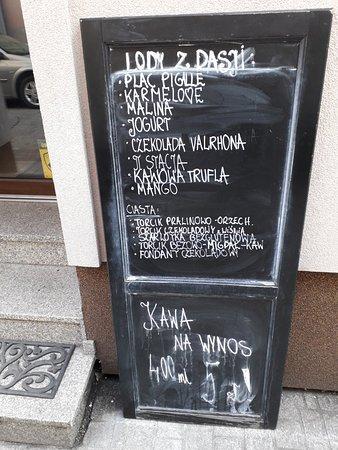 LODY Z PASJI:
• PLAC PIGALLE
• KARMELOVE
• MALINA
• JOGURT
• CZEKOLADA VALRHONA
• PISTACJA
• KAWOWA TRUFLA
• MANGO
CIASTA:
• TORCIK PRALINOWO-ORZECH.
• TORCIK CZEKOLADOWY z WIŚNIĄ
• SZARLOTKA BEZGLUTENOWA
• TORCIK BEZOWO-MIGDAŁ-KAW
• FONDANY CZEKOLADOWY
KAWA
NA WYNOS
400 ml 5